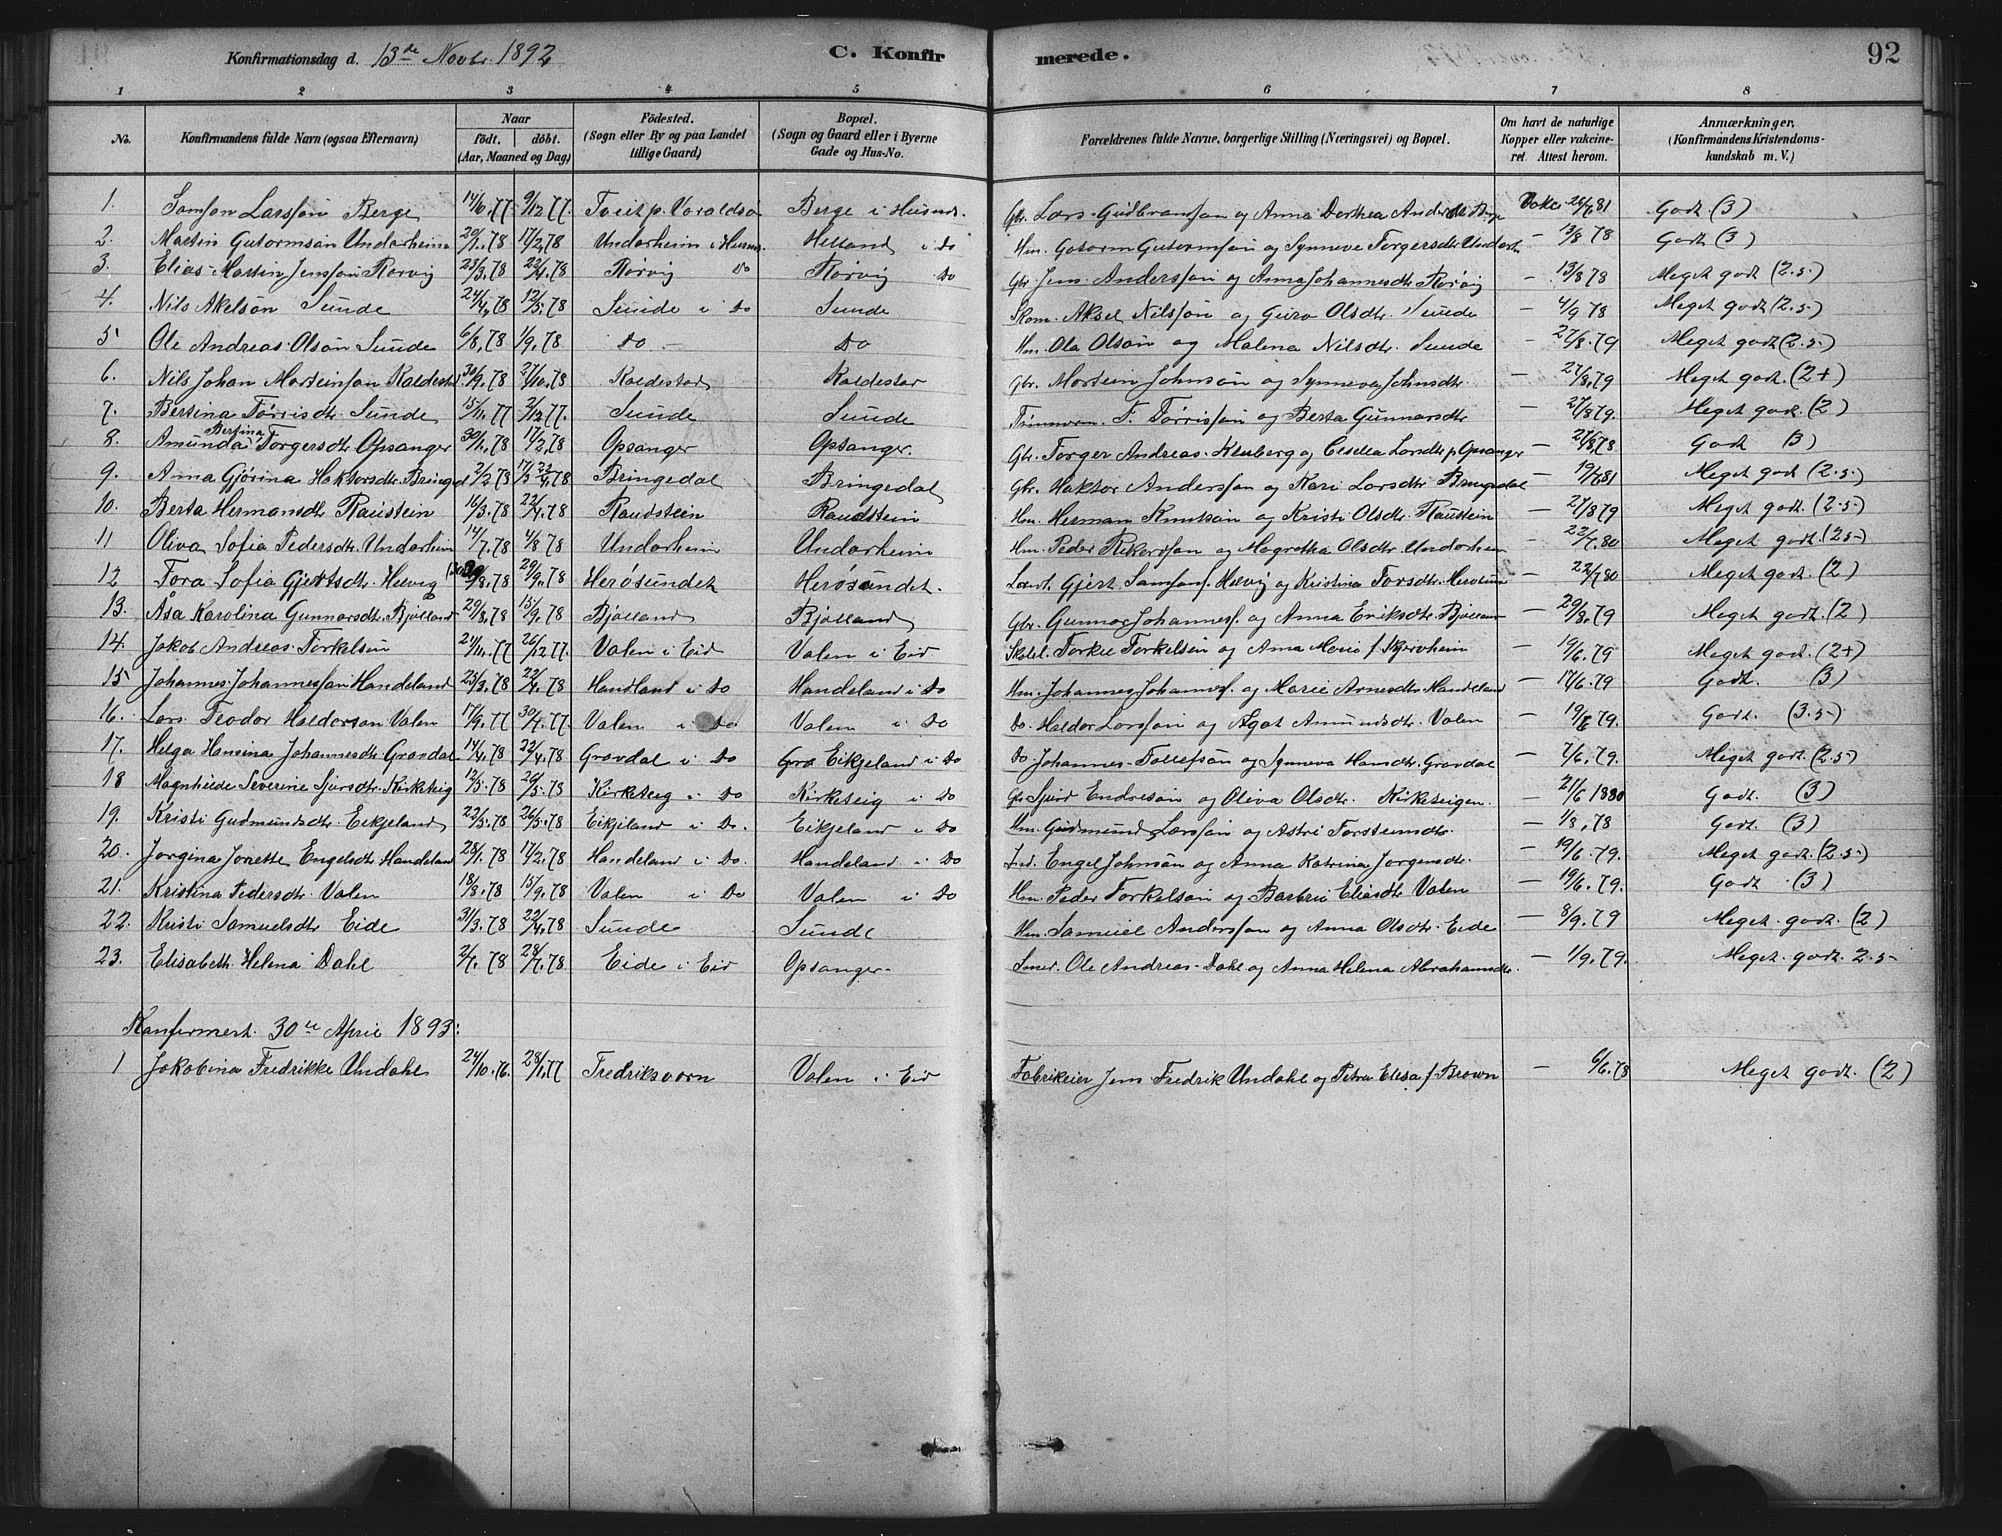 Konfirmationsdag d. 13de Novbr. 1892 C. Konfirmerede. 92
1 2 3 4 5 6 7 8
No. Konfirmandens fulde Navn (ogsaa Efternavn) Naar födt. döbt. (Aar, Maaned og Dag) Födested. (Sogn eller By og paa Landet tillige Gaard) Bopæl. (Sogn og Gaard eller i Byerne Gade og Hus-No. Forældrenes fulde Navne, borgerlige Stilling (Næringsvei) og Bopæl. Om havt de naturlige Kopper eller vakcineret. Attest herom. Anmærkninger. (Konfirmandens Kristendomskundskab m. V.)
1. Samson Larsson Berge 14/10.77 9/12 77. Tveit p. Varaldsö Berge i Husnes. Gbr. Lars Gudbransson og Anna Dorthea Andersdtr Berge 26/7 81 Godt (3)
2. Martin Gutormson Undarheim 20/1.78 17/2.78 Undarheim i Husnes Helland i Do Hm. Gotorm Gutormson og Synneve Torgersdtr Undarh. — 13/8 78 Godt (3)
3. Elias Martin Jensson Rørvig 23/3.78 22/4.78 Rørvig Do Rørvig Do Gbr Jens Andersson og Anna Johannesdtr Rørvig — 13/8 78 Meget godt (2.5)
4. Nils Akselson Sunde 24/4.78 12/5.78 Sunde i Do Sunde Skom. Aksel Nilsson og Guro Olsdtr. Sunde — 4/9 78 Meget godt (2.5)
5 Ole Andreas Olson Sunde 6/8.78 1/9.78 Do — Do Hm. Ola Olson og Malena Nilsdtr. Sunde — 27/8.79 Meget godt (2.5)
6. Nils Johan Morteinson Kaldestad 30/9.78 27/10.78 Kaldestad Kaldestad Gbr. Mortein Johnson og Synneva Johnsdtr — 27/8.79 Meget godt. (2+)
7. Bertina Tørrisdtr. Sunde 15/11.77 2/12 77. Sunde Sunde T. Tørrisson og Berta Gunnarsdtr — 27/8 79. Meget godt. (2)
8. Amunda Bertina Torgersdtr Opsanger 30/1.78 17/2.78 Opsanger Opsanger. Gbr. Torger Andreas og Larsdtr p. Opsanger — 27/8.78 Godt (3)
9. Anna Gjørina Haktorsdtr. Bringedal 2/2 78 Bringedal Bringedal Gbr. Haktor Andersson og Kari Larsdtr Bringedal — 19/7 81 Meget godt (2.5)
10. Berta Hermansdtr Raustein 16/3.78 22/4.78 Raudstein Raudstein Hm. Herman Knutson og Kristi Olsdtr. Raustein — 27/8 79 Meget godt (2.5)
11 Oliva Sofia Pedersdtr. Undarheim 14/7.78 4/8 78 Undarheim Undarheim Hm. Peder Rikardson og Magretha Olsdtr Undarheim — 22/7.80 Meget godt. (2.5)
12 Tora Sofia Gjertsdtr. Helvig 29/9.78 Herøsundet Herøsundet. Gjert Samsons. Helvig og Kristina Torsdtr. Herøsund — 22/7 80 Meget godt. (2)
13. Åsa Karolina Gunnarsdtr. Bjølland 29/8.78 15/9.78 Bjølland Bjølland Gbr. Gunnar Johanness. og Anna Eriksdtr. Bjølland — 29/8.79 Meget godt. (2)
14. Jakob Andreas Torkelsen 21/11.77 26/12 77. Valen i Eid Valen i Eid Torkel Torkelsen og Anna Maria f. — 19/6.79 Meget godt. (2+)
15 Johannes Johannesson Handeland 23/3.78 22/4.78 Handland i Do Handeland i Do Hm. Johannes Johanness. og Marie Arnesdtr. Handeland — 17/6.79 Godt. (3)
16. Lars Teodor Haldorson Valen 17/9.77 Valen i Do Valen i Do Do. Haldor Larsson og Agat Amundsdtr. Valen — 19/6 79. Godt. (3.5)
17. Helga Hansina Johannesdtr Gravdal 14/4.78 22/4.78 Gravdal i Do Gra Eikjeland i Do Do Johannes Tollefson og Synneva Hansdtr. Gravdal — 7/6.79. Meget godt. (2.5)
18 Magnhilde Severine Sjursdtr. Kirketeig 12/5.78 26/5.78 Kirketeig i Do Kirketeig i Do Sjurd Endreson og Oliva Olsdtr. Kirketeigen. — 21/6 1880 Godt. (3)
19. Kristi Gudmundsdtr. Eikjeland 22/5.78 26/5.78 Eikjeland i Do. Eikjeland i Do Hm. Gudmund Larsson og Astri Torsteinsdtr. — 1/8.78 Godt. (3)
20. Jorgina Jorette Engelsdtr Handeland 28/1.78 17/2.78 Handeland i Do. Handeland i Do Engel Johnson og Anna Katrina Jorgensdtr. — 19/6.79. Meget godt. (2.5)
21. Kristina Pedersdtr. Valen 18/8.78 15/9.78 Valen i Do Valen i Do Hm. Peder Torkelson og Barbru Eliasdtr Valen — 19/6.79. Godt (3)
22. Kristi Samuelsdtr Eide 31/3.78 22/4.78 Sunde Sunde Hm. Samuel Andersson og Anna Olsdtr. Eide — 8/9.79 Meget godt. (2)
23. Elisabeth Helena Dahl 2/7.78 28/7.78 Eide i Eid Opsanger. Smed. Ole Andreas Dahl og Anna Helena Abrahamsdtr. — 1/9.79. Meget godt. 2.5
Konfirmert 30te April 1893:
1 Jakobina Fredrikke Undahl 24/10.76. 28/1.77 Fredriksværn Valen i Eid Fabrikeier Jens Fredrik Undahl og Petra Elisa f. Brown — 6/6.78 Meget godt. (2)